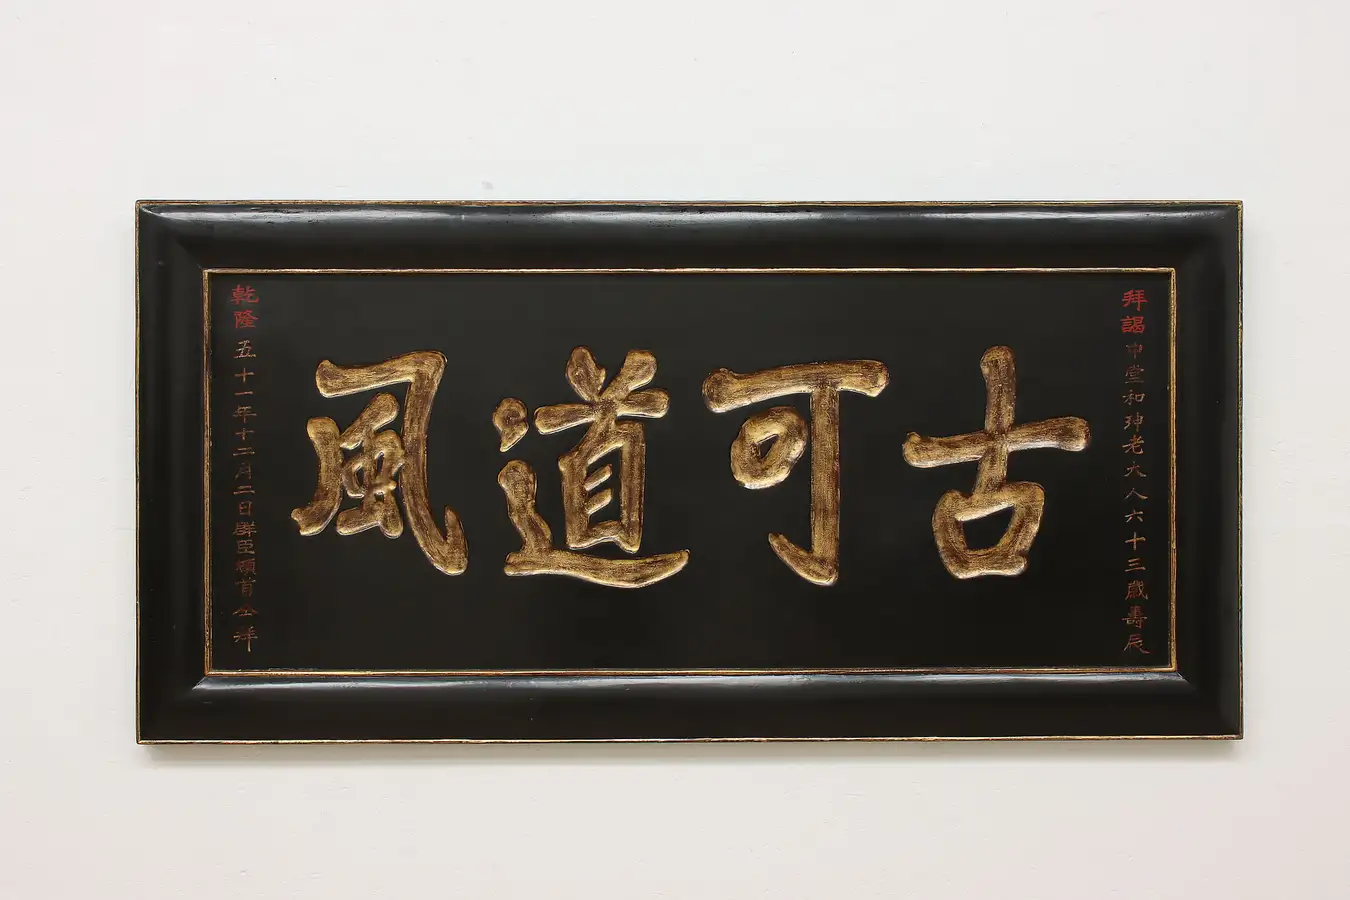 拜謁中堂和珅老大人六十三歲壽辰
古可道風
乾隆五十一年十二月二日群臣頓首仝拜